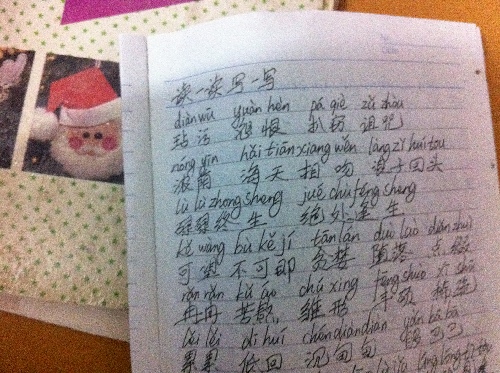 读一读写一写
diàn wū yuàn hèn pá qiè zǔ zhòu
玷污 怨恨 扒窃 诅咒
nóng yīn hǎi tiān xiāng wěn làng zǐ huí tóu
海天相吻 浪子回头
lù lù zhōng shēng jué chù féng shēng
碌碌终生 绝处逢生
kě wàng bù kě jí tān lán duò luò diǎn zhuì
可望不可即 贪婪 堕落 点缀
rǎn rǎn kǔ áo chú xíng fēng shuò
冉冉 苦熬 雏形 丰硕
léi léi dī huí chén diàn diàn bā bā
累累 低回 沉甸甸 巴巴